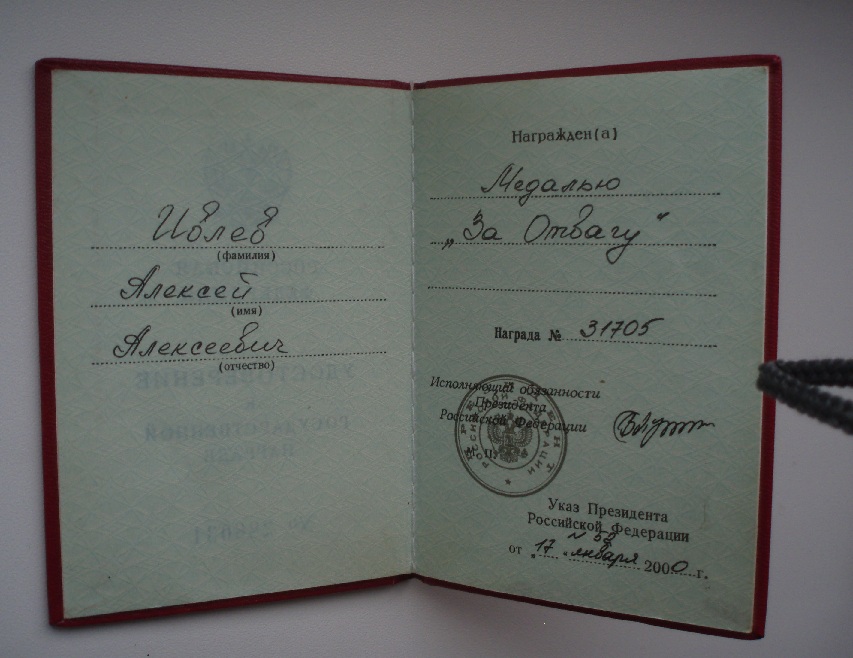 Ивлев
(фамилия)
Алексей
(имя)
Алексеевич
(отчество)
Награжден(а)
Медалью
„За Отвагу“
Награда № 31705
Исполняющий обязанности
Президента
Российской Федерации
М. П.
Указ Президента
Российской Федерации
N 52
от "17" января 2000 г.